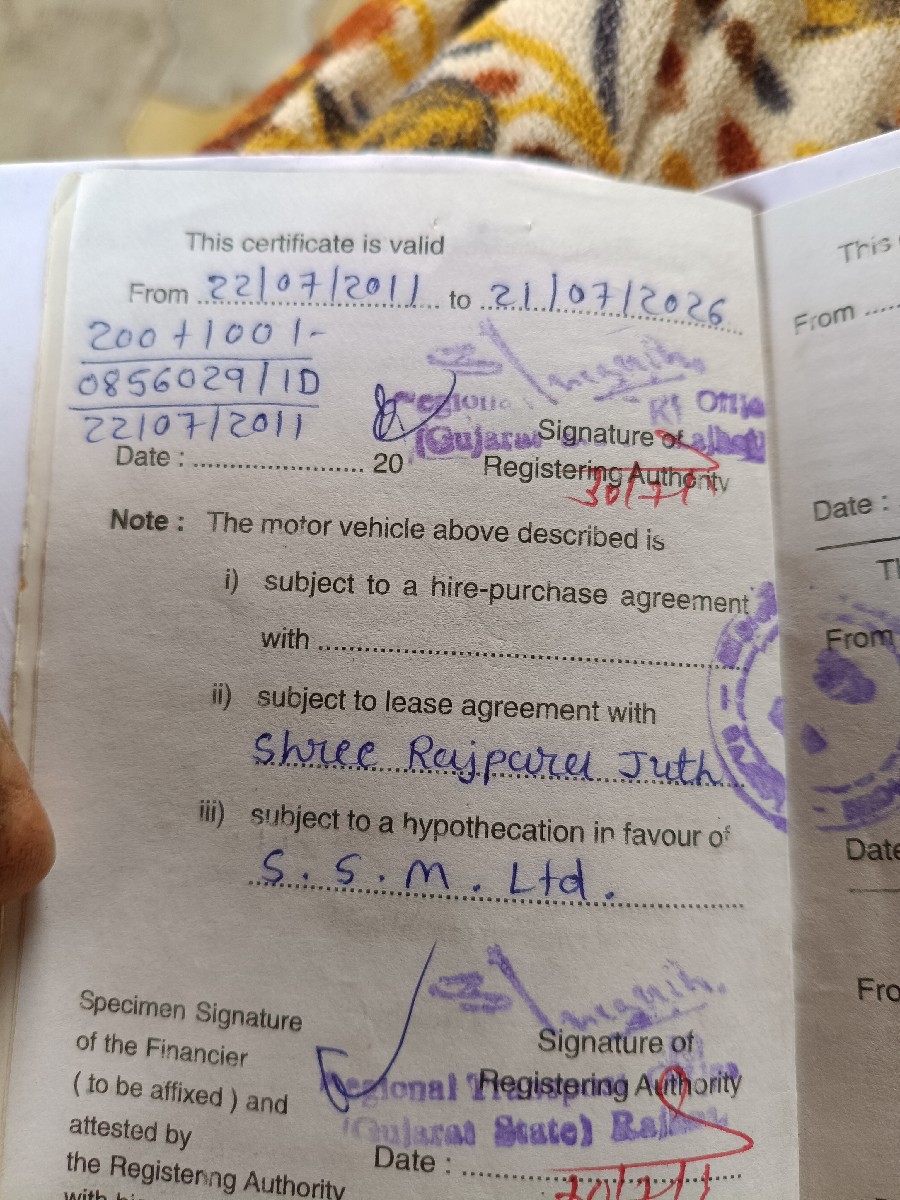 This certificate is valid
From 22/07/2011 to 21/07/2026
200+100/-
0856029/ID
22/07/2011
Signature of
Date : 20
Registering Authority
30/7/11
Note : The motor vehicle above described is
i) subject to a hire-purchase agreement
with
ii) subject to lease agreement with
Shree Rajpara Juth
iii) subject to a hypothecation in favour of
S. S. M. Ltd.
Specimen Signature
of the Financier
( to be affixed ) and
attested by
the Registering Authority
Signature of
Registering Authority
Regional
(Gujarat State)
Date :
This
From
Date :
From
Date